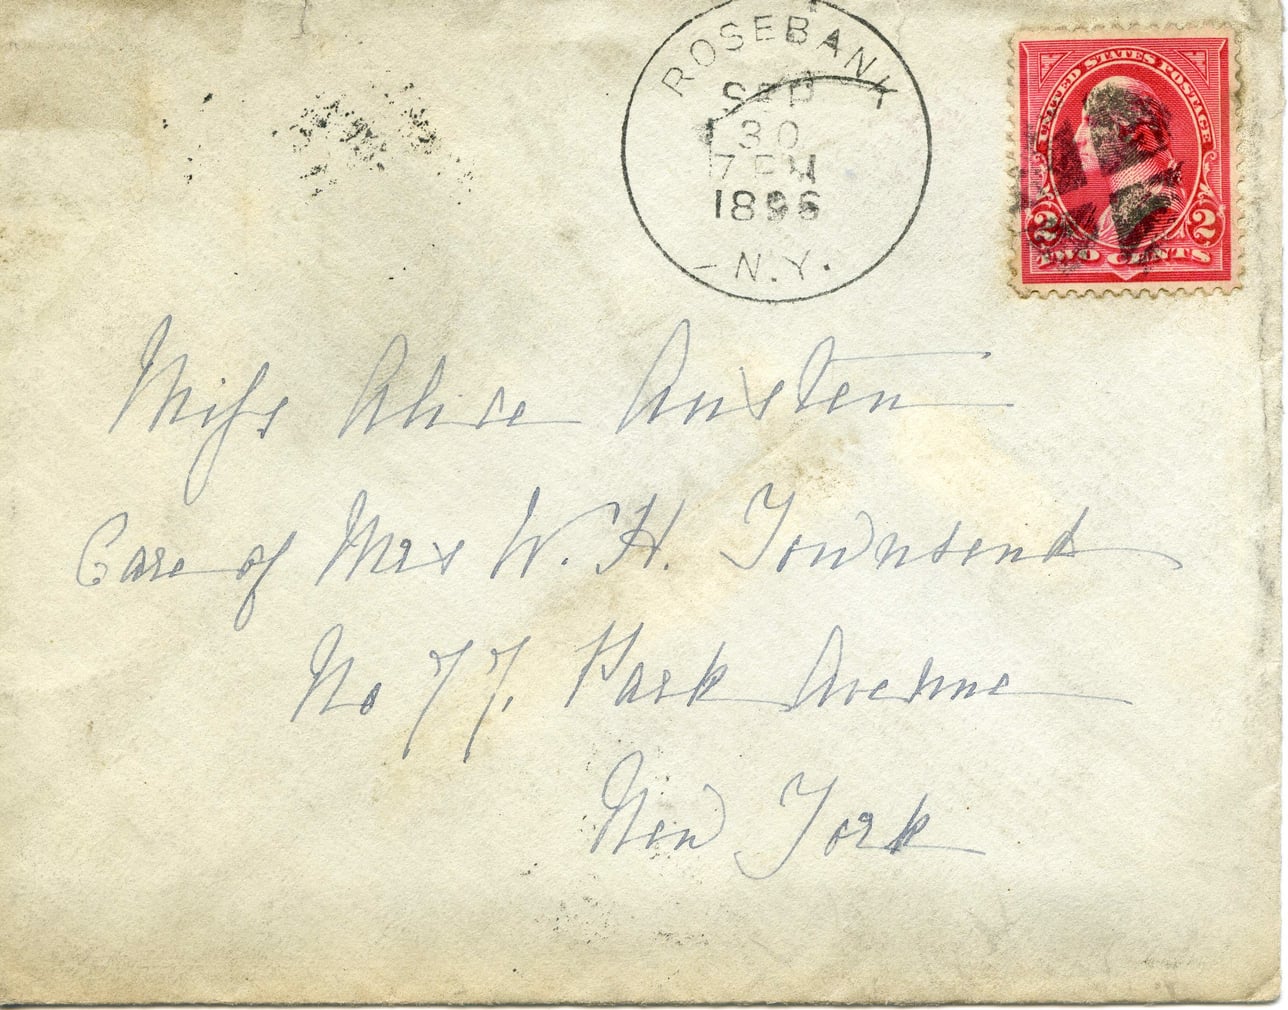 ROSEBANK
SEP
30
7 PM
1896
N.Y.
UNITED STATES POSTAGE
2 2
TWO CENTS
Miss Alice Austen
Care of Mrs W. H. Townsend
No 77, Park Avenue
New York